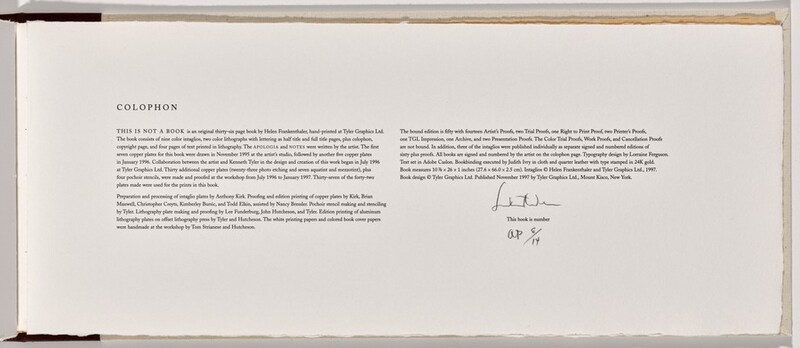 COLOPHON
THIS IS NOT A BOOK is an original thirty-six page book by Helen Frankenthaler, hand-printed at Tyler Graphics Ltd.
The book consists of nine color intaglios, two lithographs with lettering as half title and full title pages, plus colophon,
copyright page, and four pages of text printed in lithography. The APOLOGIA and NOTES were written by the artist. The first
seven copper plates for this book were drawn in November 1995 at the artist's studio, followed by another five copper plates
in January 1996. Collaboration between the artist and Kenneth Tyler in the design and creation of this work began in July 1996
at Tyler Graphics Ltd. Thirty additional copper plates (twenty-three photo etching and seven aquatint and mezzotint), plus
four pochoir stencils, were made and proofed at the workshop from July 1996 to January 1997. Thirty-seven of the forty-two
plates made were used for the prints in this book.
Preparation and processing of intaglio plates by Anthony Kirk. Proofing and edition printing of copper plates by Kirk, Brian
Maxwell, Christopher Creyts, Kimberley Burric, and Todd Elkin, assisted by Nancy Bressler. Pochoir stencil making and stenciling
by Tyler. Lithography plate making and proofing by Lee Funderburg, John Hutcheson, and Tyler. Edition printing of aluminum
lithography plates on offset lithography press by Tyler and Hutcheson. The white printing papers and colored book cover papers
were handmade at the workshop by Tom Strianese and Hutcheson.
The bound edition is fifty with fourteen Artist's Proofs, two Trial Proofs, one Right to Print Proof, two Printer's Proofs,
one TGL Impression, one Archive, and two Presentation Proofs. The Color Trial Proofs, Work Proofs, and Cancellation Proofs
are not bound. In addition, three of the intaglios were published individually as separate signed and numbered editions of
sixty plus proofs. All books are signed and numbered by the artist on the colophon page. Typography design by Lorraine Ferguson.
Text set in Adobe Caslon. Bookbinding executed by Judith Ivry in cloth and quarter leather with type stamped in 24K gold.
Book measures 10 ⅞ × 26 × 1 inches (27.6 × 66.0 × 2.5 cm). Intaglios © Helen Frankenthaler and Tyler Graphics Ltd., 1997.
Book design © Tyler Graphics Ltd. Published November 1997 by Tyler Graphics Ltd., Mount Kisco, New York.
This book is number
AP 8/14